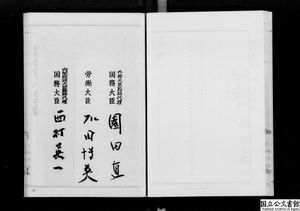 外務大臣臨時代理
国務大臣 園田直
労働大臣 加田博英
内閣総理大臣臨時代理
国務大臣 西村英一
国立公文書館
National Archives of Japan